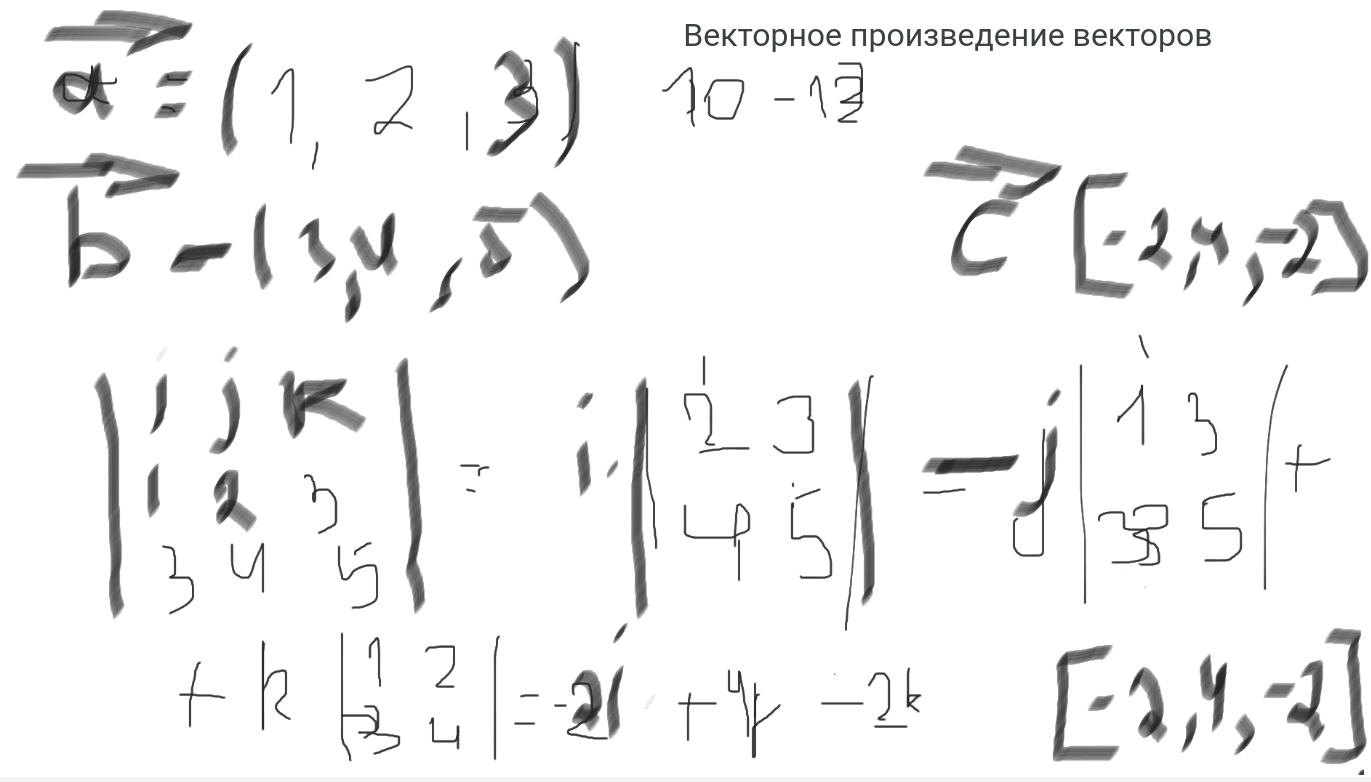 Векторное произведение векторов
a = (1, 2, 3) 10 - 12
b = (3, 4, 5) c [-2, 4, -2]
| i j k | = i · | 2 3 | - j | 1 3 | +
| 1 2 3 | | 4 5 | | 3 5 |
| 3 4 5 |
+ k | 1 2 | = -2i + 4j - 2k [-2, 4, -2]
| 3 4 |